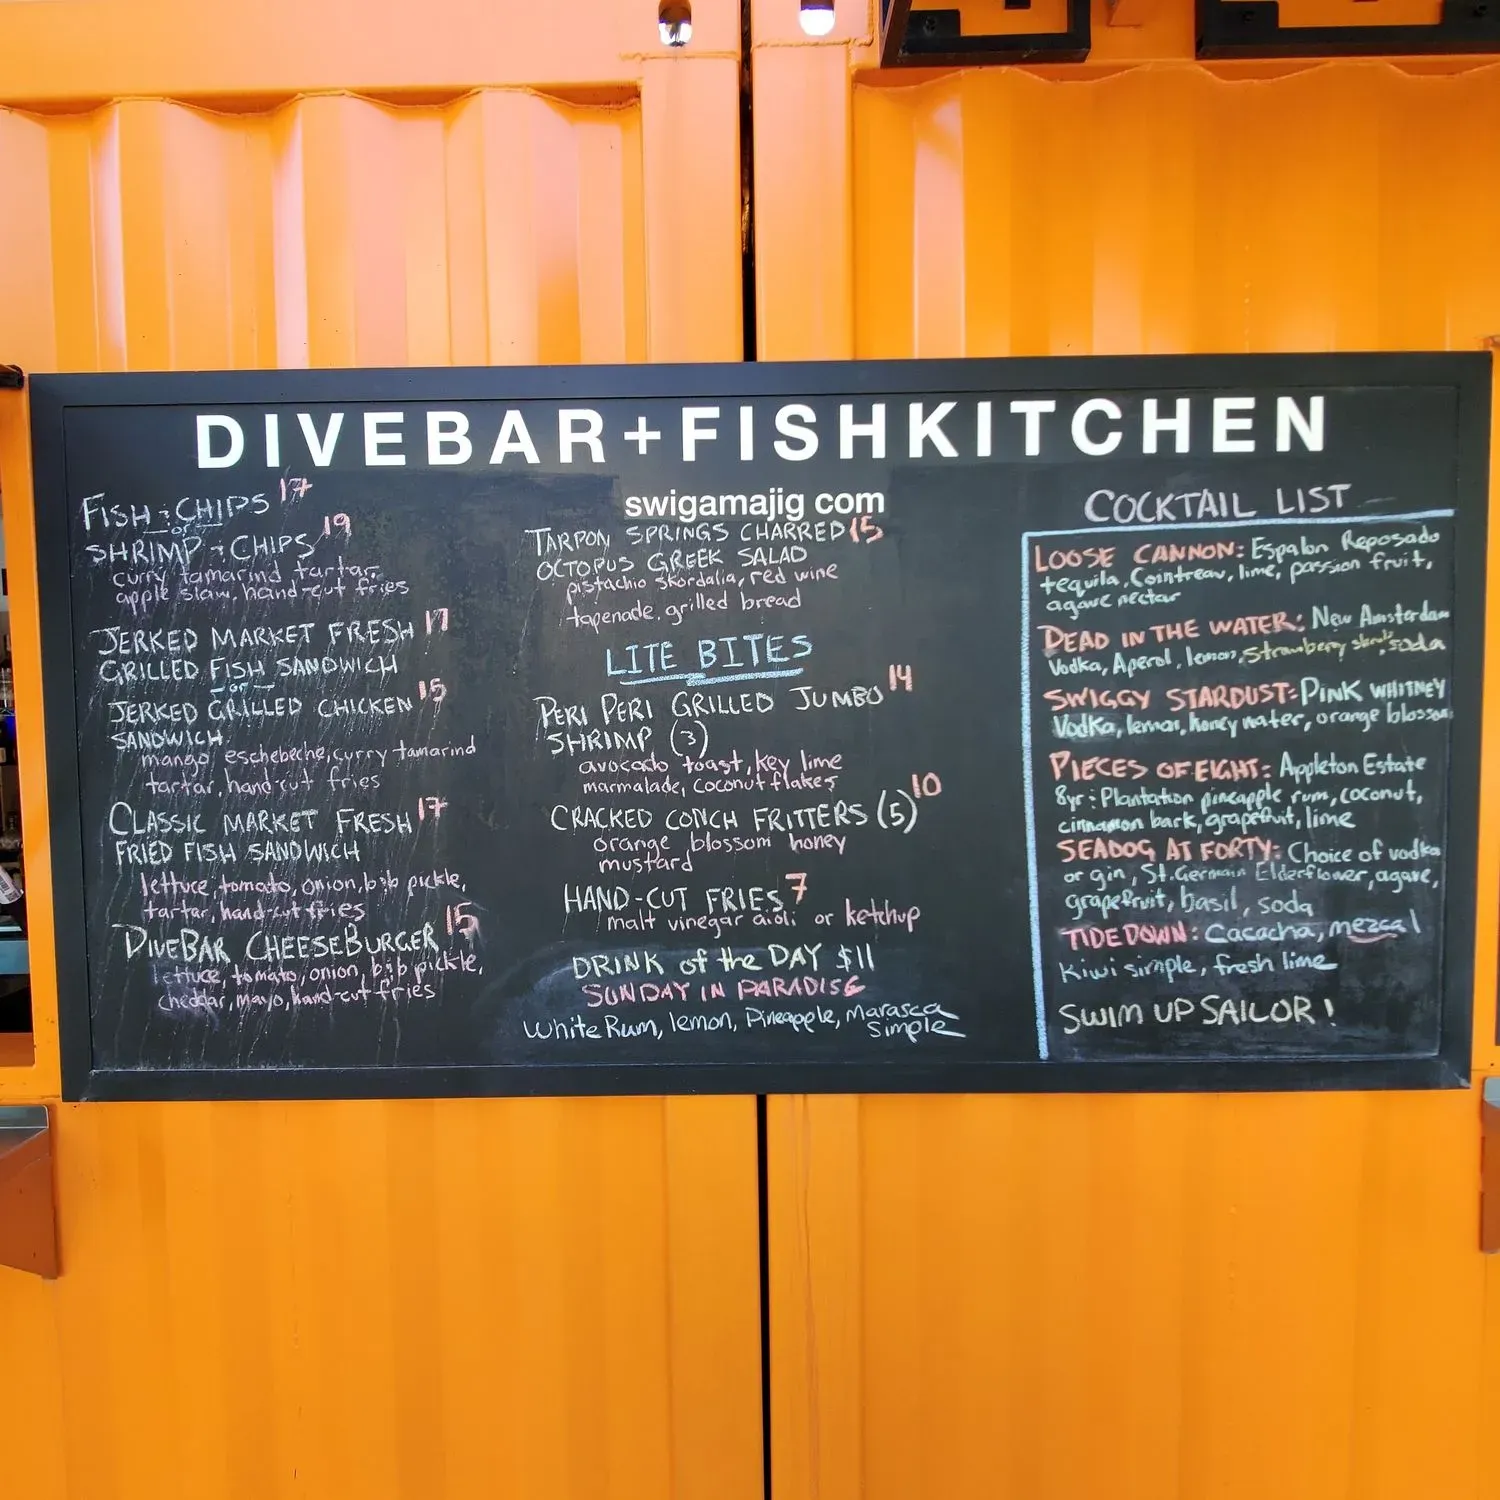 DIVEBAR+FISHKITCHEN
swigamajig com
FISH & CHIPS 17
-or-
SHRIMP & CHIPS 19
curry tamarind tartar,
apple slaw, hand-cut fries
JERKED MARKET FRESH 17
GRILLED FISH SANDWICH
-or-
JERKED GRILLED CHICKEN 15
SANDWICH
mango eschebeche, curry tamarind
tartar, hand cut fries
CLASSIC MARKET FRESH 17
FRIED FISH SANDWICH
lettuce, tomato, onion, b&b pickle,
tartar, hand-cut fries
DIVEBAR CHEESEBURGER 15
lettuce, tomato, onion, b&b pickle,
cheddar, mayo, hand-cut fries
TARPON SPRINGS CHARRED 15
OCTOPUS GREEK SALAD
pistachio skordalia, red wine
tapenade, grilled bread
LITE BITES
PERI PERI GRILLED JUMBO 14
SHRIMP (3)
avocado toast, key lime
marmalade, coconut flakes
CRACKED CONCH FRITTERS (5) 10
orange blossom honey
mustard
HAND-CUT FRIES 7
malt vinegar aioli or ketchup
DRINK of the DAY $11
SUNDAY IN PARADISE
White Rum, lemon, Pineapple, Marasca
Simple
COCKTAIL LIST
LOOSE CANNON: Espalon Reposado
tequila, Cointreau, lime, passion fruit,
agave nectar
DEAD IN THE WATER: New Amsterdam
Vodka, Aperol, lemon, Strawberry soda
SWIGGY STARDUST: PINK WHITNEY
Vodka, lemon, honey water, orange blossom
PIECES OF EIGHT: Appleton Estate
8yr & Plantation pineapple rum, coconut,
cinnamon bark, grapefruit, lime
SEADOG AT FORTY: Choice of vodka
or gin, St. Germain Elderflower, agave,
grapefruit, basil, soda
TIDEDOWN: Cacacha, mezcal
Kiwi simple, fresh lime
SWIM UP SAILOR!